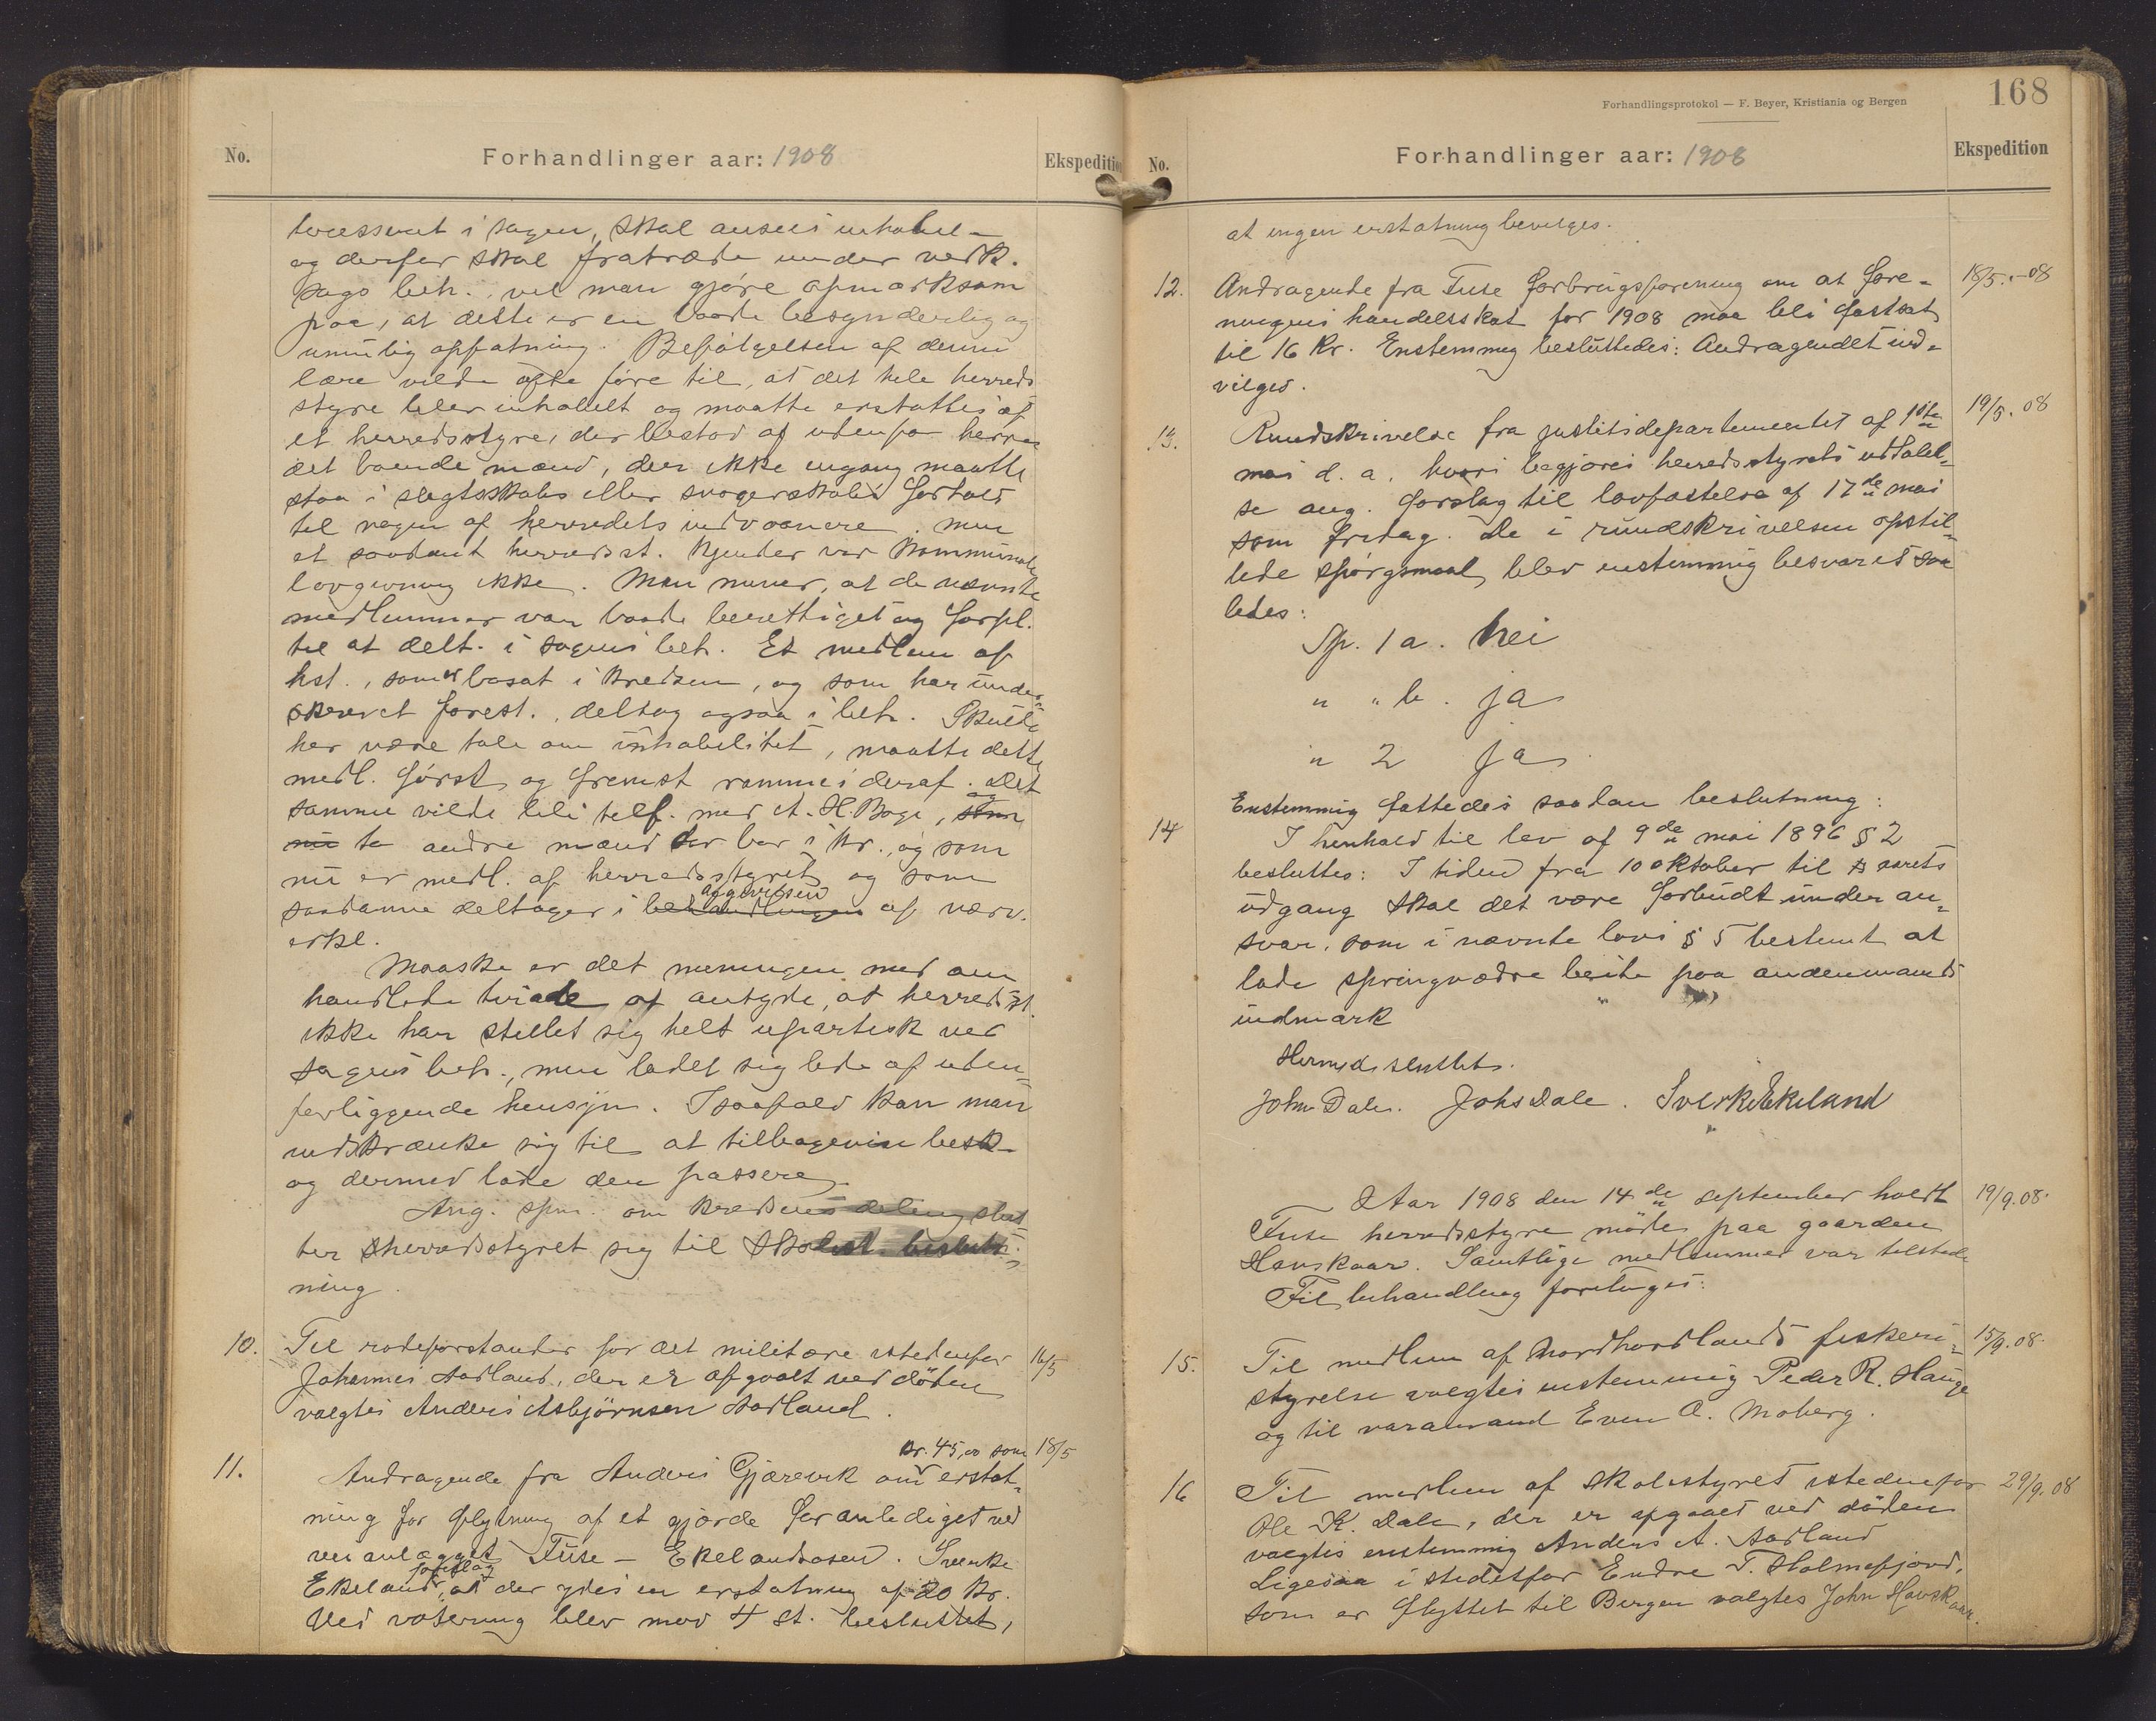 No.
Forhandlinger aar: 1908
Ekspeditio
i sagen, skal ansees inhabil
og derfor skal fratræde under vedk.
sags beh., vil man gjøre opmærksom
paa, at dette er en baade besynderlig og
umulig opfatning. Befølgelsen af denne
lære vilde ofte føre til, at det hele herreds
styre blev inhabilt og maatte erstattes af
et herredsstyre, der bestod af udenfor herre
det boende mænd, der ikke engang maatte
staa i slegtskabs eller svogerskabs forhold
til nogen af herredets indvaanere. Men
et saadant herredsst. kjender vor kommunale
lovgivning ikke. Man mener, at de nævnte
medlemmer var baade berettiget og forpl.
til at delt. i sagens beh. Et medlem af
hst., som er bosat i kredsen, og som har under-
skrevet forest., deltog ogsaa i beh. Skulde
her være tale om inhabilitet, maatte dette
medl. først og fremst rammes deraf. Det
samme vilde bli telf. med A. H. Boge, og
to andre mænd der bor i kr., og som
nu er medl. af herredsstyret og som
saadanne deltager i behandlingen afgivelsen af nærv.
erkl.
Maaske er det meningen med om
handlede at antyde, at herredsst.
ikke har stillet sig helt upartisk ved
sagens beh., men ladet sig lede af uden-
forliggende hensyn. Isaafald kan man
indskrænke sig til at tilbagevise besk.
og dermed lade den passere.
Ang. spm. om kredsens deling slut-
ter herredsstyret sig til skolest. beslut-
ning.
10. Til rodeforstander for det militære istedenfor 16/5
Johannes Aadland, der er afgaaet ved døden
valgtes Anders Asbjørnsen Aadland.
kr. 45,00 som 18/5
11. Andragende fra Anders Gjærevik om erstat-
ning for flytning af et gjærde foranlediget ved
veianlægget Fuse - Ekelandsosen. Sverke
Ekeland foreslog, at der ydes en erstatning af 20 kr.
Ved votering blev mod 4 st. besluttet,
Forhandlingsprotokol — F. Beyer, Kristiania og Bergen
168
No.
Forhandlinger aar: 1908
Ekspedition
at ingen erstatning bevilges.
12. Andragende fra Fuse forbrugsforening om at fore- 18/5.-08
ningens handelsskat for 1908 maa bli fastsat
til 16 kr. Enstemmig besluttedes: Andragendet ind-
vilges.
13. Rundskrivelse fra justitsdepartementet af 1ste 19/5.08
mai d. a. hvori begjæres herredsstyrets udtalel-
se ang. forslag til lovfæstelse af 17de mai
som fridag. De i rundskrivelsen opstil-
lede spørgsmaal blev enstemmig besvaret saa
ledes:
Sp. 1 a. nei
" " b. ja
" 2 ja
Enstemmig fattedes saadan beslutning:
14 I henhold til lov af 9de mai 1896 § 2
besluttes: I tiden fra 10 oktober til aarets
udgang skal det være forbudt under an-
svar, som i nævnte lovs § 5 bestemt at
lade springvædre beite paa andenmands
indmark
Hermed sluttet.
John Dale. Johs Dale. Sverke Ekeland
Aar 1908 den 14de september holdt 19/9.08.
Fuse herredsstyre møde paa gaarden
Havskaar. Samtlige medlemmer var tilstede
Til behandling foretoges:
15. Til medlem af Nordhordlands fiskeri- 15/9.08.
styrelse valgtes enstemmig Peder R. Hauge
og til varamand Even A. Moberg.
16 Til medlem af skolestyret istedenfor 29/9.08
Ole K. Dale, der er afgaaet ved døden
valgtes enstemmig Anders A. Aadland
Ligesaa i stedetfor Endre T. Holmefjord,
som er flyttet til Bergen valgtes John Havskaar.